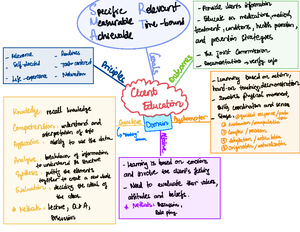 S Specific
M Measurable
A Achievable
R Relevant
T Time-bound
Goals
Outcomes
- Provide clients information
- Educate on medications, medical
treatment, conditions, health promotion,
and prevention strategies.
- The Joint Commission
- Documentation → verify info
- Relevance
- Self-directed
- Life-experience
- Readiness
- Task-centered
- Motivation
Principles
Client
Education
Domain
Cognitive
"thinking"
Psychomotor
Affective
Knowledge: recall knowledge
Comprehension: understand and
interpretation of info
Application: ability to use the data
Analysis: breakdown of information
to understand its structure
Synthesis: putting the elements
together to create a new whole
Evaluation: deciding the value of
the ideas
* Methods: lecture, Q&A,
Discussion
- Learning is based on emotions
and involve the client's feeling
- Need to evaluate their values,
attitudes and beliefs.
* Methods:
Role play
- Learning based on action,
hand-on teaching/demonstration
- Involves physical movement,
skills, coordination and senses
- Steps: